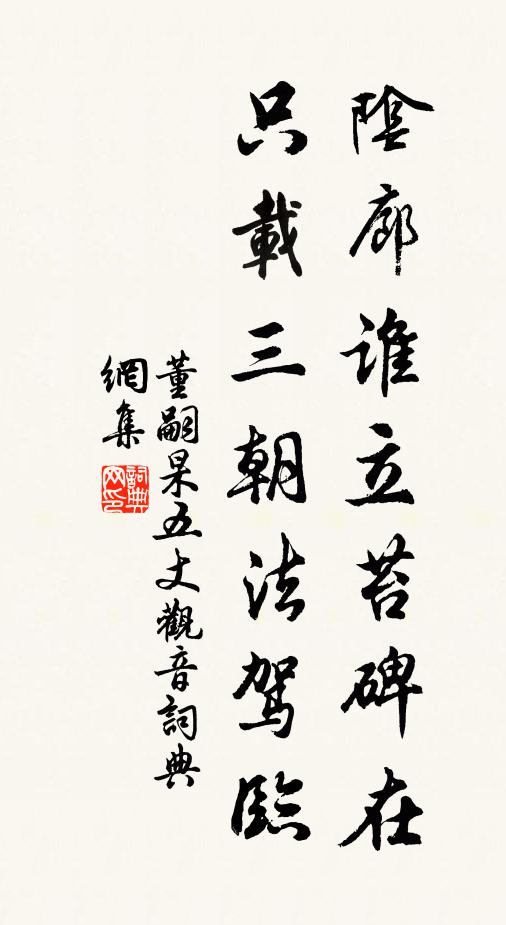 陰廊誰立苔碑在
只載三朝法駕臨
董嗣杲五丈觀音詞典
網集
詞典網印